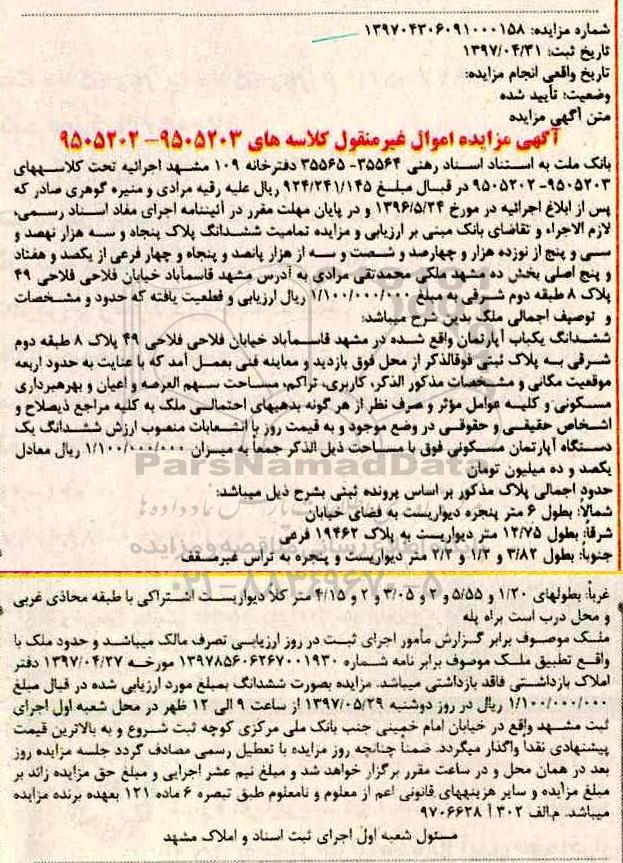 شماره مزایده: ۱۳۹۷۰۴۳۰۶۰۹۱۰۰۰۱۵۸
تاریخ ثبت: ۱۳۹۷/۰۴/۳۱
تاریخ واقعی انجام مزایده:
وضعیت: تأیید شده
متن آگهی مزایده
آگهی مزایده اموال غیرمنقول کلاسه های ۹۵۰۵۲۰۳- ۹۵۰۵۲۰۲
بانک ملت به استناد اسناد رهنی ۳۵۵۶۴- ۳۵۵۶۵ دفترخانه ۱۰۹ مشهد اجرائیه تحت کلاسههای
۹۵۰۵۲۰۳- ۹۵۰۵۲۰۲ در قبال مبلغ ۹۲۴/۲۴۱/۱۴۵ ریال علیه رقیه مرادی و منیره گوهری صادر که
پس از ابلاغ اجرائیه در مورخ ۱۳۹۶/۵/۲۴ و در پایان مهلت مقرر در آئیننامه اجرای مفاد اسناد رسمی،
لازم الاجراء و تقاضای بانک مبنی بر ارزیابی و مزایده تمامیت ششدانگ پلاک پنجاه و سه هزار نهصد و
سی و پنج از نوزده هزار و چهارصد و شصت و سه از هزار پانصد و پنجاه و چهار فرعی از یکصد و هفتاد
و پنج اصلی بخش ده مشهد ملکی محمدتقی مرادی به آدرس مشهد قاسمآباد خیابان فلاحی فلاحی ۴۹
پلاک ۸ طبقه دوم شرقی به مبلغ ۱/۱۰۰/۰۰۰/۰۰۰ ریال ارزیابی و قطعیت یافته که حدود و مشخصات
و توصیف اجمالی ملک بدین شرح میباشد:
ششدانگ یکباب آپارتمان واقع شده در مشهد قاسمآباد خیابان فلاحی فلاحی ۴۹ پلاک ۸ طبقه دوم
شرقی به پلاک ثبتی فوقالذکر از محل فوق بازدید و معاینه فنی بعمل آمد که با عنایت به حدود اربعه
موقعیت مکانی و مشخصات مذکور الذکر، کاربری، تراکم، مساحت سهم العرصه و اعیان و بهرهبرداری
مسکونی و کلیه عوامل مؤثر و صرف نظر از هر گونه بدهیهای احتمالی ملک به کلیه مراجع ذیصلاح و
اشخاص حقیقی و حقوقی در وضع موجود و به قیمت روز با انشعابات منصوب ارزش ششدانگ یک
دستگاه آپارتمان مسکونی فوق با مساحت ذیل الذکر جمعاً به میزان ۱/۱۰۰/۰۰۰/۰۰۰ ریال معادل
یکصد و ده میلیون تومان
ParsNamadData
حدود اجمالی پلاک مذکور بر اساس پرونده ثبتی بشرح ذیل میباشد:
شمالاً: بطول ۶ متر پنجره دیواریست به فضای خیابان
شرقاً: بطول ۱۲/۷۵ متر دیواریست به پلاک ۱۹۴۶۲ فرعی
جنوباً: بطول ۳/۸۲ و ۱/۲ و ۲/۲ متر دیواریست و پنجره به تراس غیرمسقف
۰۲۱-۸۸۳۴۹۶۷۰-۵
غرباً: بطولهای ۱/۲۰ و ۵/۵۵ و ۲ و ۳/۰۵ و ۲ و ۴/۱۵ متر کلاً دیواریست اشتراکی با طبقه محاذی غربی
و محل درب است براه پله
ملک موصوف برابر گزارش مأمور اجرای ثبت در روز ارزیابی تصرف مالک میباشد و حدود ملک با
واقع تطبیق ملک موصوف برابر نامه شماره ۱۳۹۷۸۵۶۰۶۲۶۷۰۰۱۹۳۰ مورخه ۱۳۹۷/۰۴/۲۷ دفتر
املاک بازداشتی فاقد بازداشتی میباشد. مزایده بصورت ششدانگ بمبلغ مورد ارزیابی شده در قبال مبلغ
۱/۱۰۰/۰۰۰/۰۰۰ ریال در روز دوشنبه ۱۳۹۷/۰۵/۲۹ از ساعت ۹ الی ۱۲ ظهر در محل شعبه اول اجرای
ثبت مشهد واقع در خیابان امام خمینی جنب بانک ملی مرکزی کوچه ثبت شروع و به بالاترین قیمت
پیشنهادی نقداً واگذار میگردد. ضمناً چنانچه روز مزایده با تعطیل رسمی مصادف گردد جلسه مزایده روز
بعد در همان محل و در ساعت مقرر برگزار خواهد شد و مبلغ نیم عشر اجرایی و مبلغ حق مزایده زائد بر
مبلغ مزایده و سایر هزینههای قانونی اعم از معلوم و نامعلوم طبق تبصره ۶ ماده ۱۲۱ بعهده برنده مزایده
میباشد. م.الف ۳۰۲ آ ۹۷۰۶۶۲۸
مسئول شعبه اول اجرای ثبت اسناد و املاک مشهد